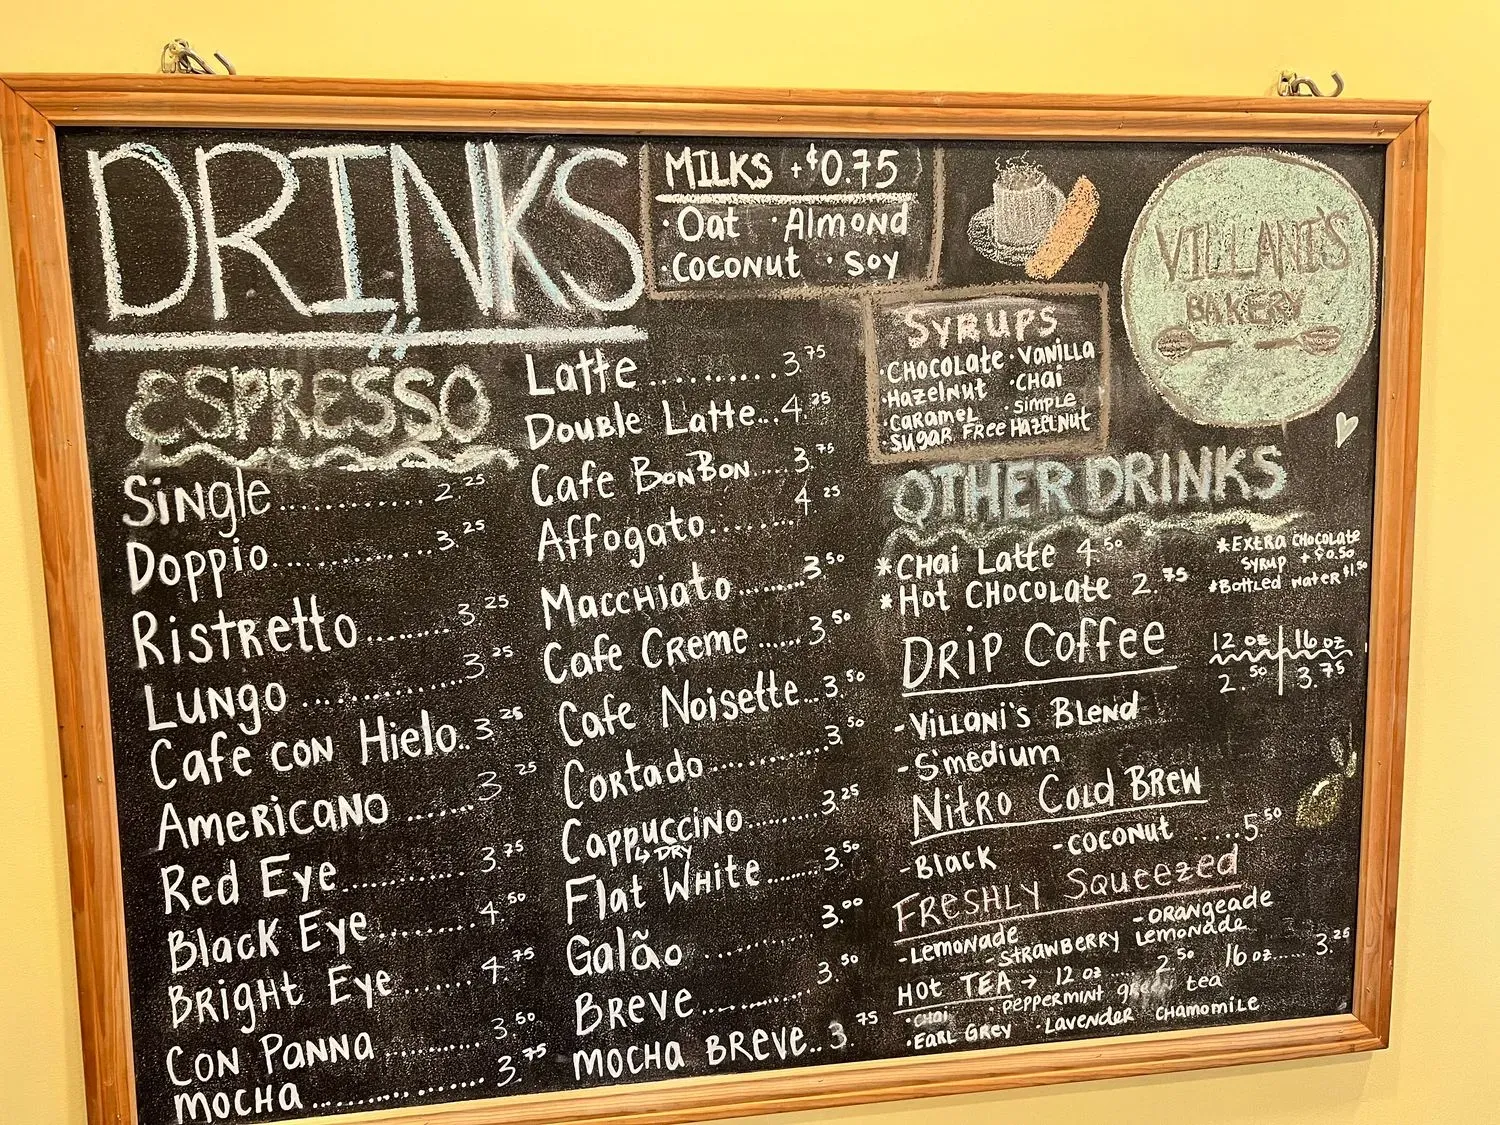 DRINKS
MILKS +$0.75
· Oat · Almond
· Coconut · Soy
VILLANI'S
BAKERY
SYRUPS
· CHOCOLATE · VANILLA
· Hazelnut · CHai
· CARAMEL · SIMPLE
· SUGAR FREE HAZELNUT
ESPRESSO
Single............ 2.25
Doppio............ 3.25
Ristretto........ 3.25
Lungo ............ 3.25
Cafe con Hielo.. 3.25
Americano ...... 3.25
Red Eye........... 3.75
Black Eye......... 4.50
Bright Eye....... 4.75
Con Panna.......... 3.50
Mocha................ 3.75
Latte........... 3.75
Double Latte... 4.25
Cafe BonBon..... 3.75
Affogato........ 4.25
Macchiato........ 3.50
Cafe Creme ...... 3.50
Cafe Noisette... 3.50
Cortado........... 3.50
Cappuccino......... 3.25
↳ DRY
Flat White........ 3.50
Galão ........... 3.00
Breve........... 3.50
Mocha Breve.. 3.75
OTHER DRINKS
*CHai Latte 4.50
*Hot CHOCOLate 2.75
*EXtRa CHocoLate
Syrup +$0.50
*Bottled water $1.50
Drip Coffee
12 oz 16 oz
2.50 3.75
-Villani's Blend
-S'medium
Nitro Cold Brew
-Black -coconut ..... 5.50
FRESHLY Squeezed
-Lemonade -orangeade
-Strawberry Lemonade
Hot TEA → 12 oz ..... 2.50 16 oz...... 3.25
·CHai ·Peppermint green tea
·Earl Grey ·Lavender chamomile